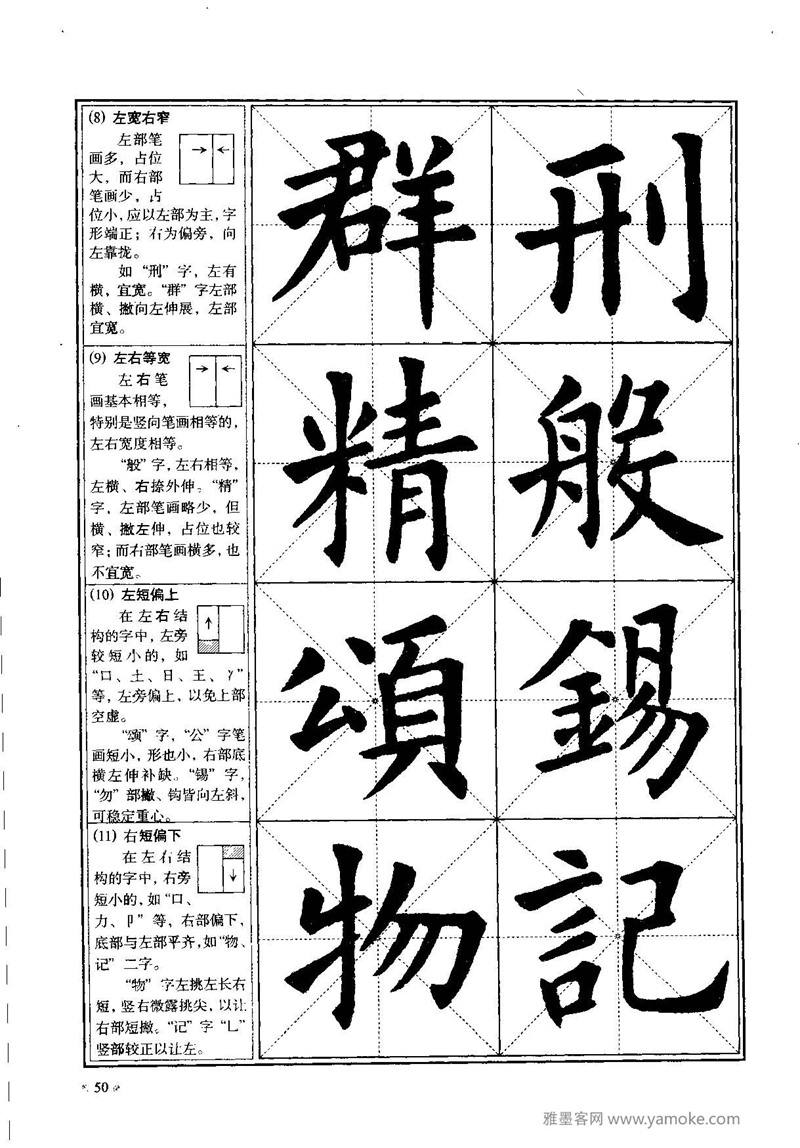 (8) 左宽右窄
左部笔
画多，占位
大，而右部
笔画少，占
位小，应以左部为主，字
形端正；右为偏旁，向
左靠拢。
如“刑”字，左有
横，宜宽。“群”字左部
横、撇向左伸展，左部
宜宽。
(9) 左右等宽
左右笔
画基本相等，
特别是竖向笔画相等的，
左右宽度相等。
“般”字，左右相等，
左横、右捺外伸。“精”
字，左部笔画略少，但
横、撇左伸，占位也较
窄；而右部笔画横多，也
不宜宽。
(10) 左短偏上
在左右结
构的字中，左旁
较短小的，如
“口、土、日、王、丫”
等，左旁偏上，以免上部
空虚。
“颂”字，“公”字笔
画短小，形也小，右部底
横左伸补缺。“锡”字，
“勿”部撇、钩皆向左斜，
可稳定重心。
(11) 右短偏下
在左右结
构的字中，右旁
短小的，如“口、
力、卩”等，右部偏下，
底部与左部平齐，如“物、
记”二字。
“物”字左挑左长右
短，竖右微露挑尖，以让
右部短撇。“记”字“乚”
竖部较正以让左。
群 刑
精 般
頌 錫
物 記
50
雅墨客网 www.yamoke.com